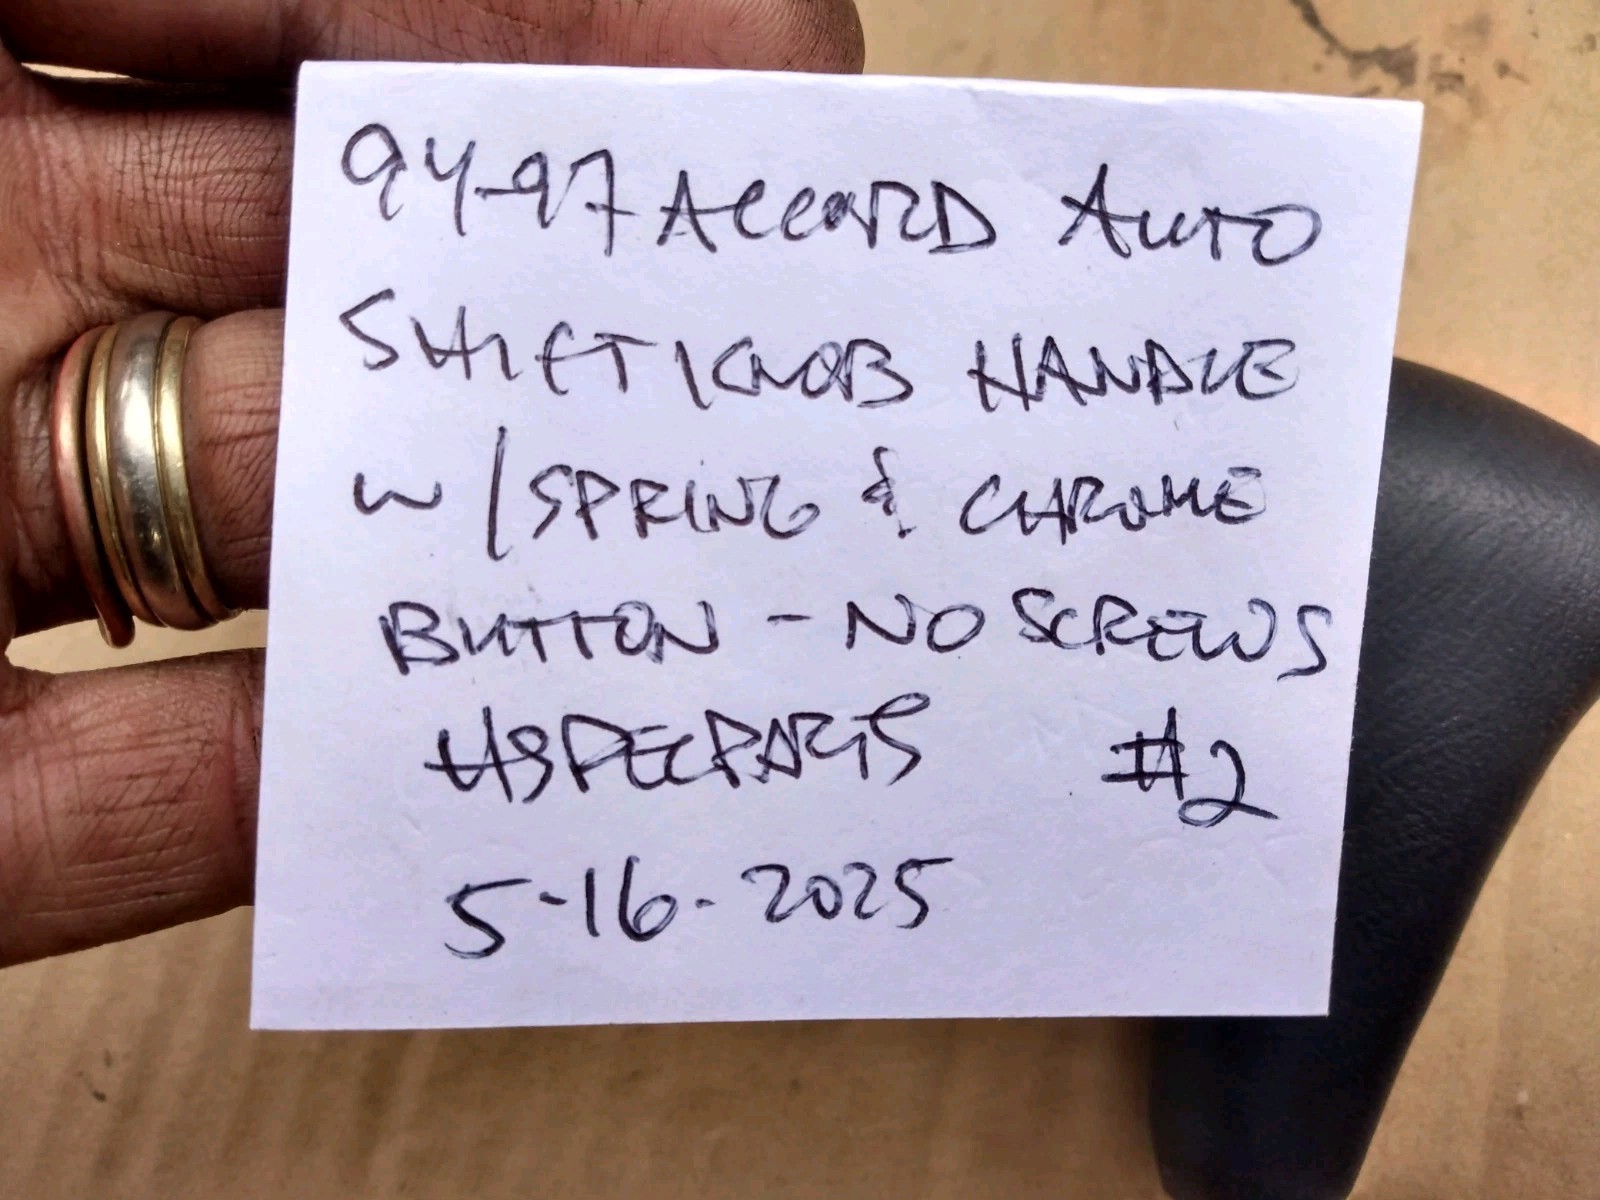 94-97 ACCORD AUTO
SHIFT KNOB HANDLE
W/SPRING & CHROME
BUTTON - NO SCREWS
HSPECPARTS #2
5-16-2025